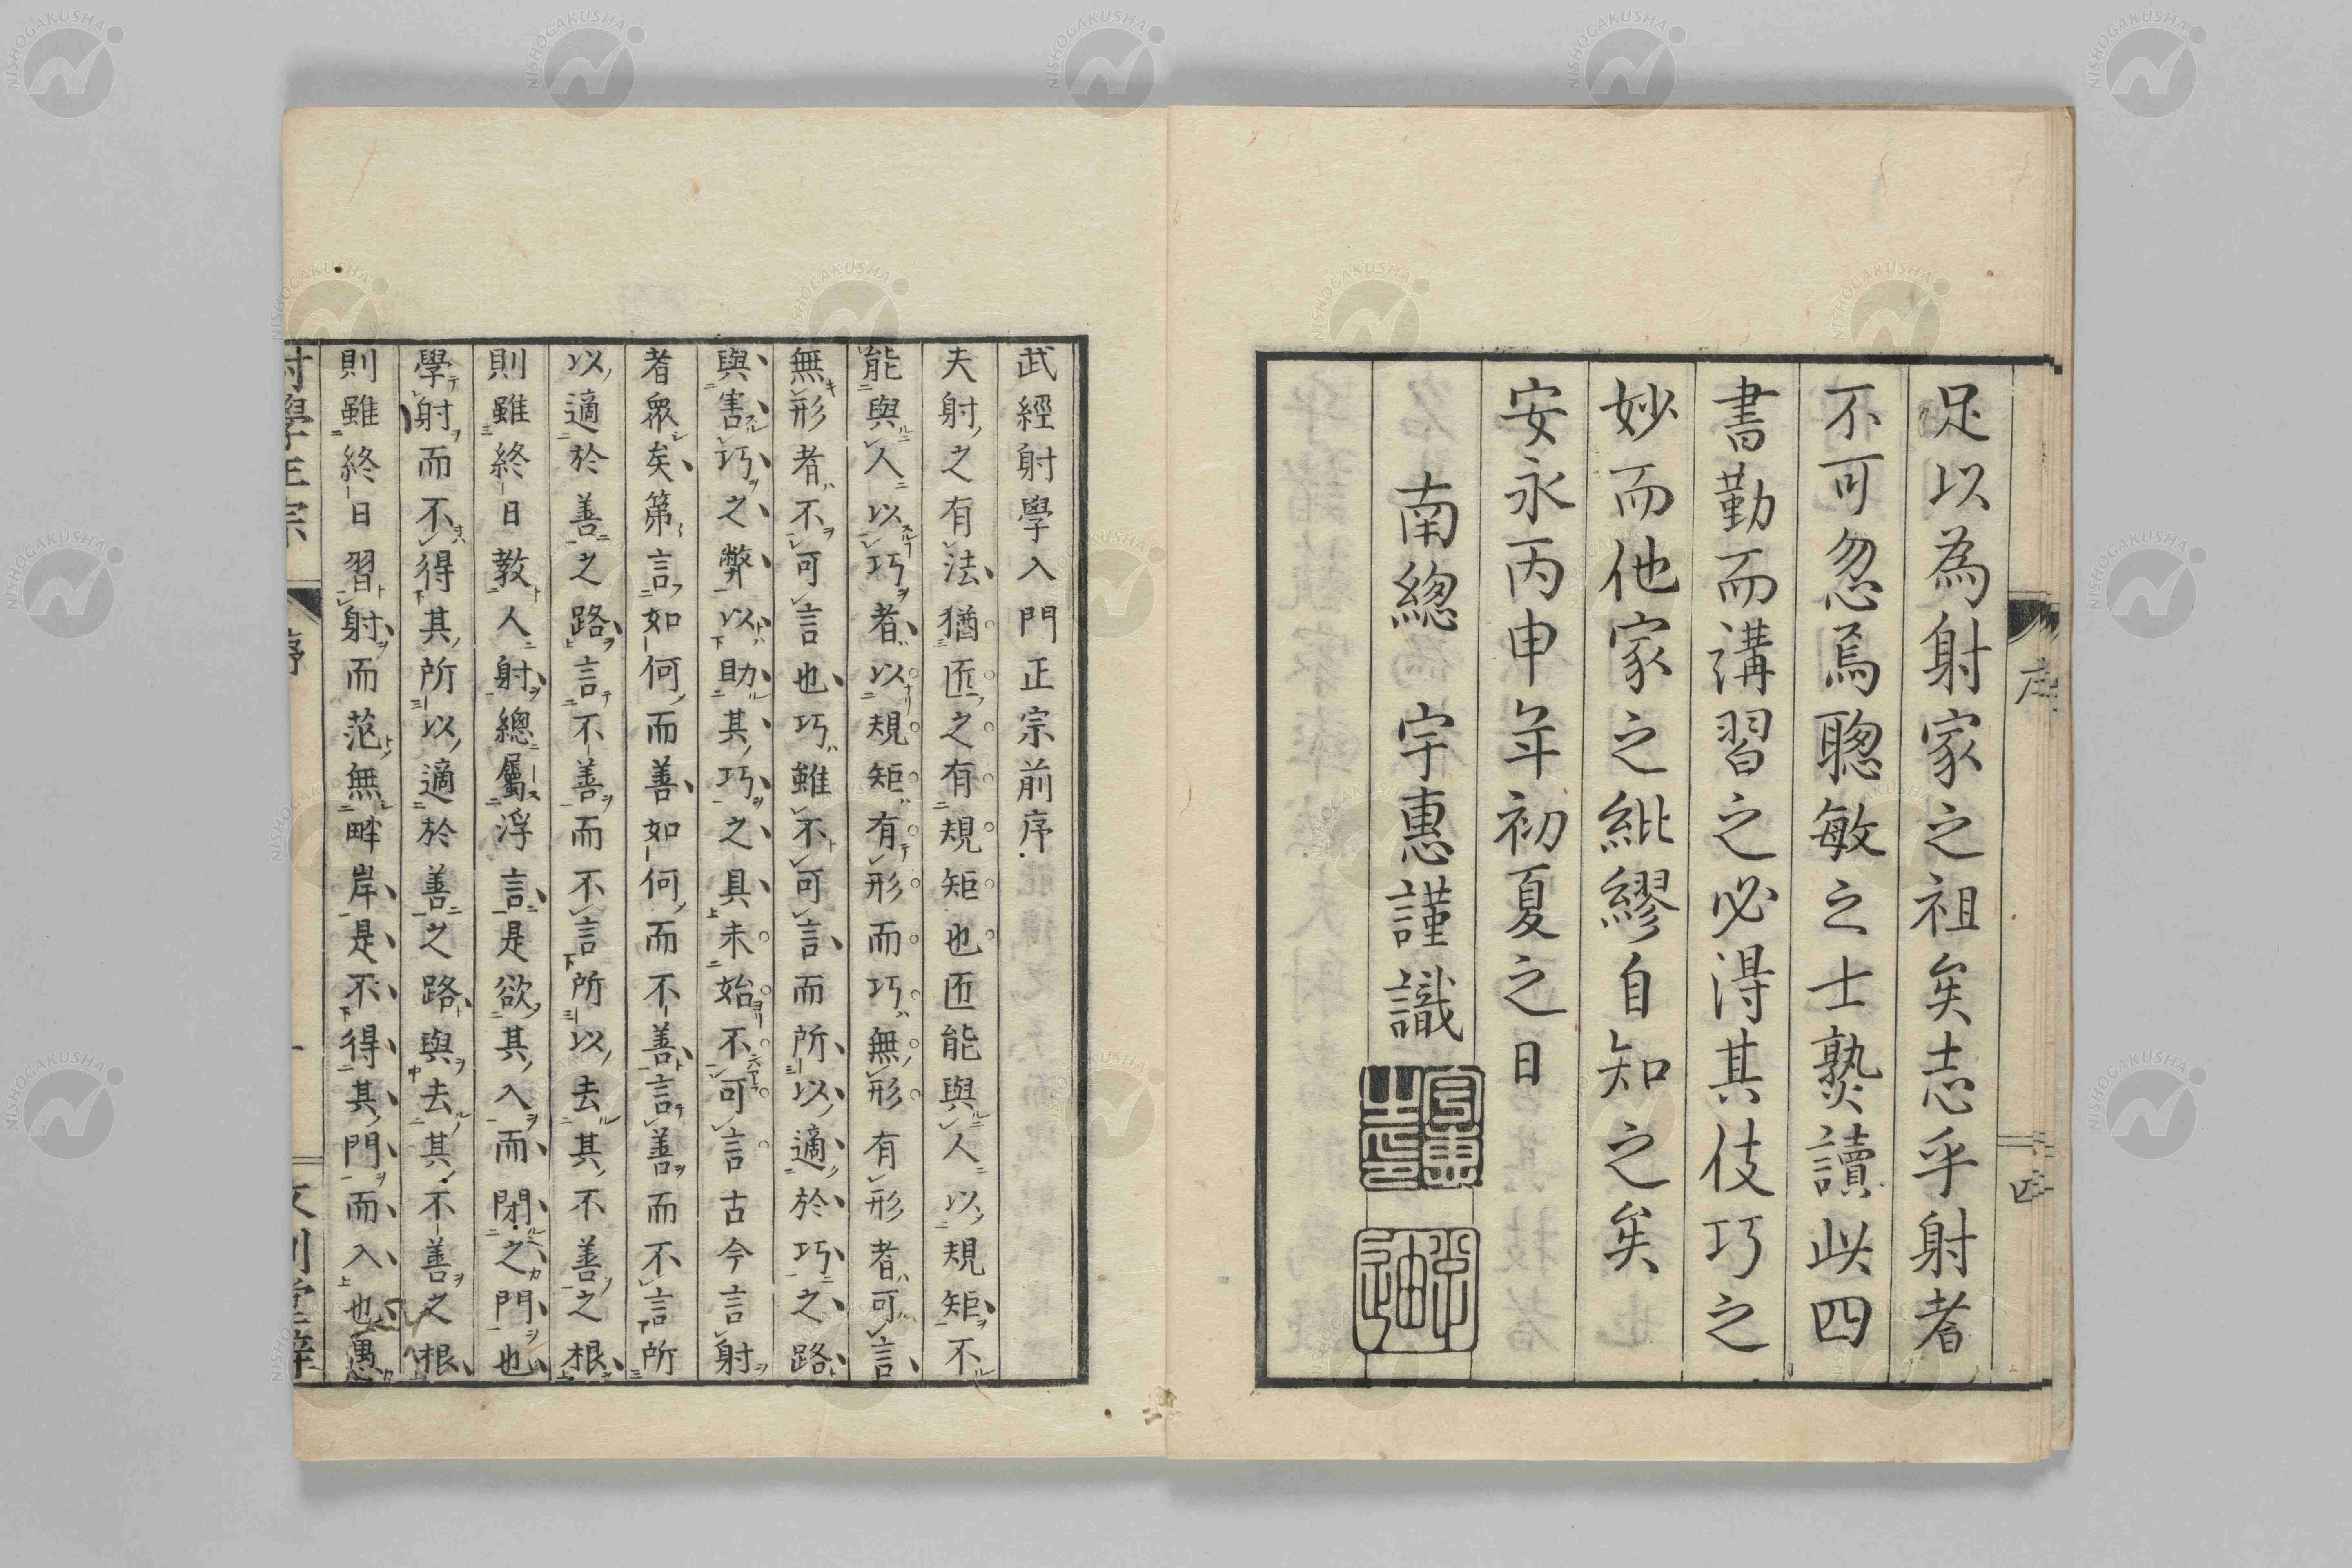 足以為射家之祖矣志乎射者
不可忽焉聰敏之士熟讀此四
書勤而講習之必得其伎巧之
妙而他家之紕繆自知之矣
安永丙申年初夏之日
南總 宇惠謹識
武經射學入門正宗前序
夫射之有法猶匠之有規矩也匠能與人以規矩不
能與人以巧者以規矩有形而巧無形有形者可言
無形者不可言也巧雖不可言而所以適於巧之路
與害巧之弊以助其巧之具未始不可言古今言射
者眾矣第言如何而善如何而不善言善而不言所
以適於善之路言不善而不言所以去其不善之根
則雖終日教人射總屬浮言是欲其入而閉之門也
學射而不得其所以適於善之路與去其不善之根
則雖終日習射而茫無畔岸是不得其門而入也愚
序
四
NISHOGAKUSHA